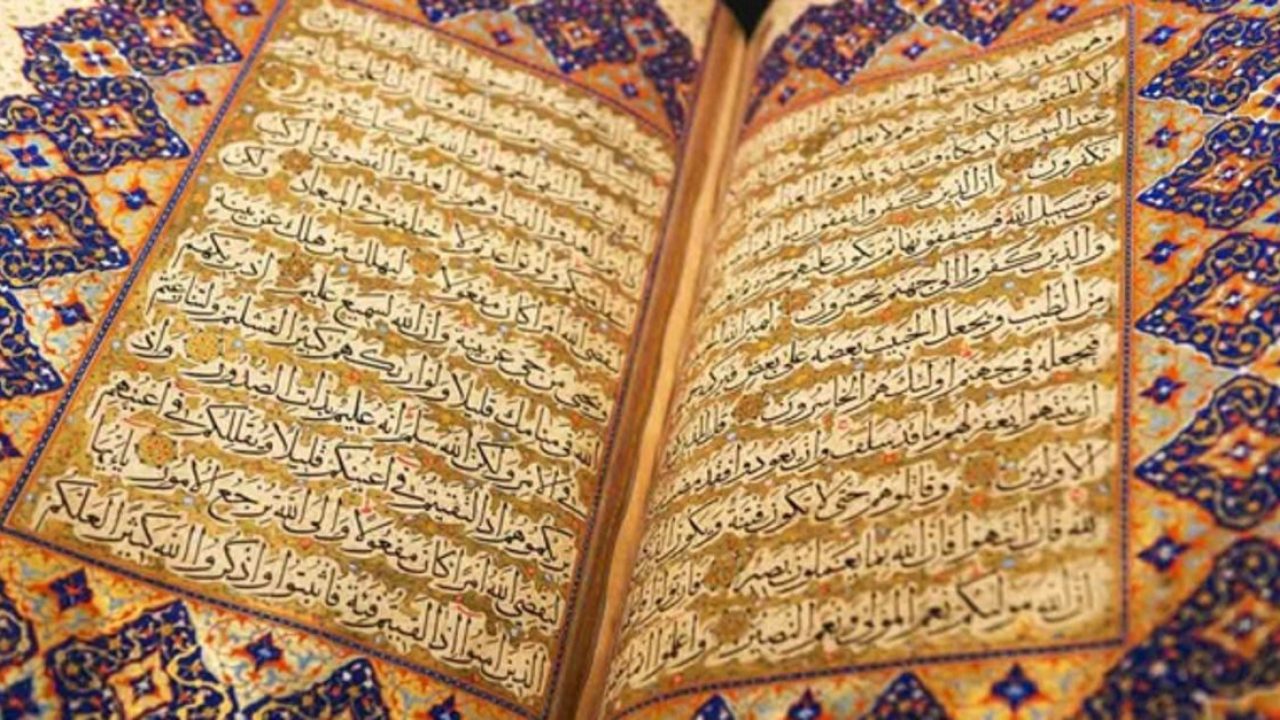 وهم يصدون عن المسجد الحرام
الا المتقون ولكن اكثرهم لا يعلمون
عند البيت الا مكاء وتصدية فذوقوا
تكفرون ان الذين كفروا ينفقون
عن سبيل الله فسينفقونها ثم تكون عليهم حسرة
والذين كفروا الى جهنم يحشرون ليميز الله
من الطيب ويجعل الخبيث بعضه على بعض فيركمه
فيجعله في جهنم اولئك هم الخاسرون قل للذين
ان ينتهوا يغفر لهم ما قد سلف وان يعودوا فقد مضت
الاولين وقاتلوهم حتى لا تكون فتنة ويكون
لله فان انتهوا فان الله بما يعملون بصير وان تولوا
ان الله موليكم نعم المولى ونعم النصير واعلموا
العدوة الدنيا وهم بالعدوة القصوى والركب
ولو تواعدتم لاختلفتم في الميعاد ولكن
ليقضي الله امرا كان مفعولا ليهلك من هلك عن بينة
ويحيى من حي عن بينة وان الله لسميع عليم اذ يريكهم
الله في منامك قليلا ولو اريكهم كثيرا لفشلتم ولتنازعتم
في الامر ولكن الله سلم انه عليم بذات الصدور واذ
يريكموهم اذ التقيتم في اعينكم قليلا ويقللكم في اعينهم
ليقضي الله امرا كان مفعولا والى الله ترجع الامور يا ايها
الذين امنوا اذا لقيتم فئة فاثبتوا واذكروا الله كثيرا لعلكم